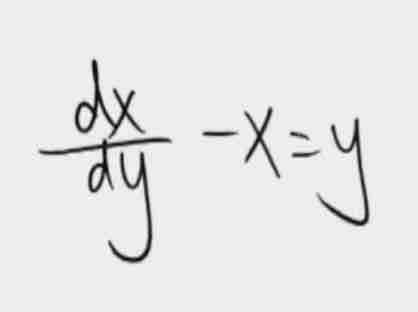 dx/dy - x = y